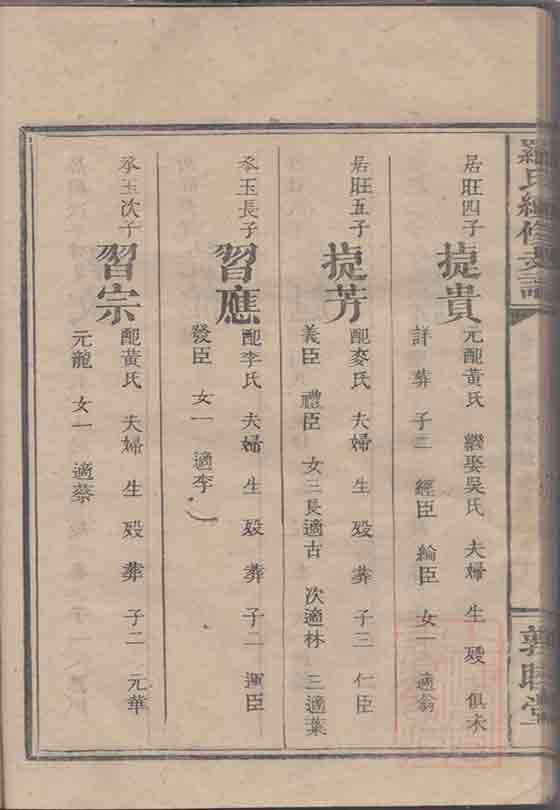 羅氏續修支譜
敦睦堂
居旺四子
捷貴
元配黃氏 繼娶吳氏 夫婦 生 歿 俱未
詳 葬 子二 經臣 綸臣 女一 適翁
居旺五子
捷芳
配麥氏 夫婦 生 歿 葬 子三 仁臣
義臣 禮臣 女三 長適古 次適林 三適葉
承玉長子
習應
配李氏 夫婦 生 歿 葬 子二 運臣
發臣 女一 適李
承玉次子
習宗
配黃氏 夫婦 生 歿 葬 子二 元華
元龍 女一 適蔡